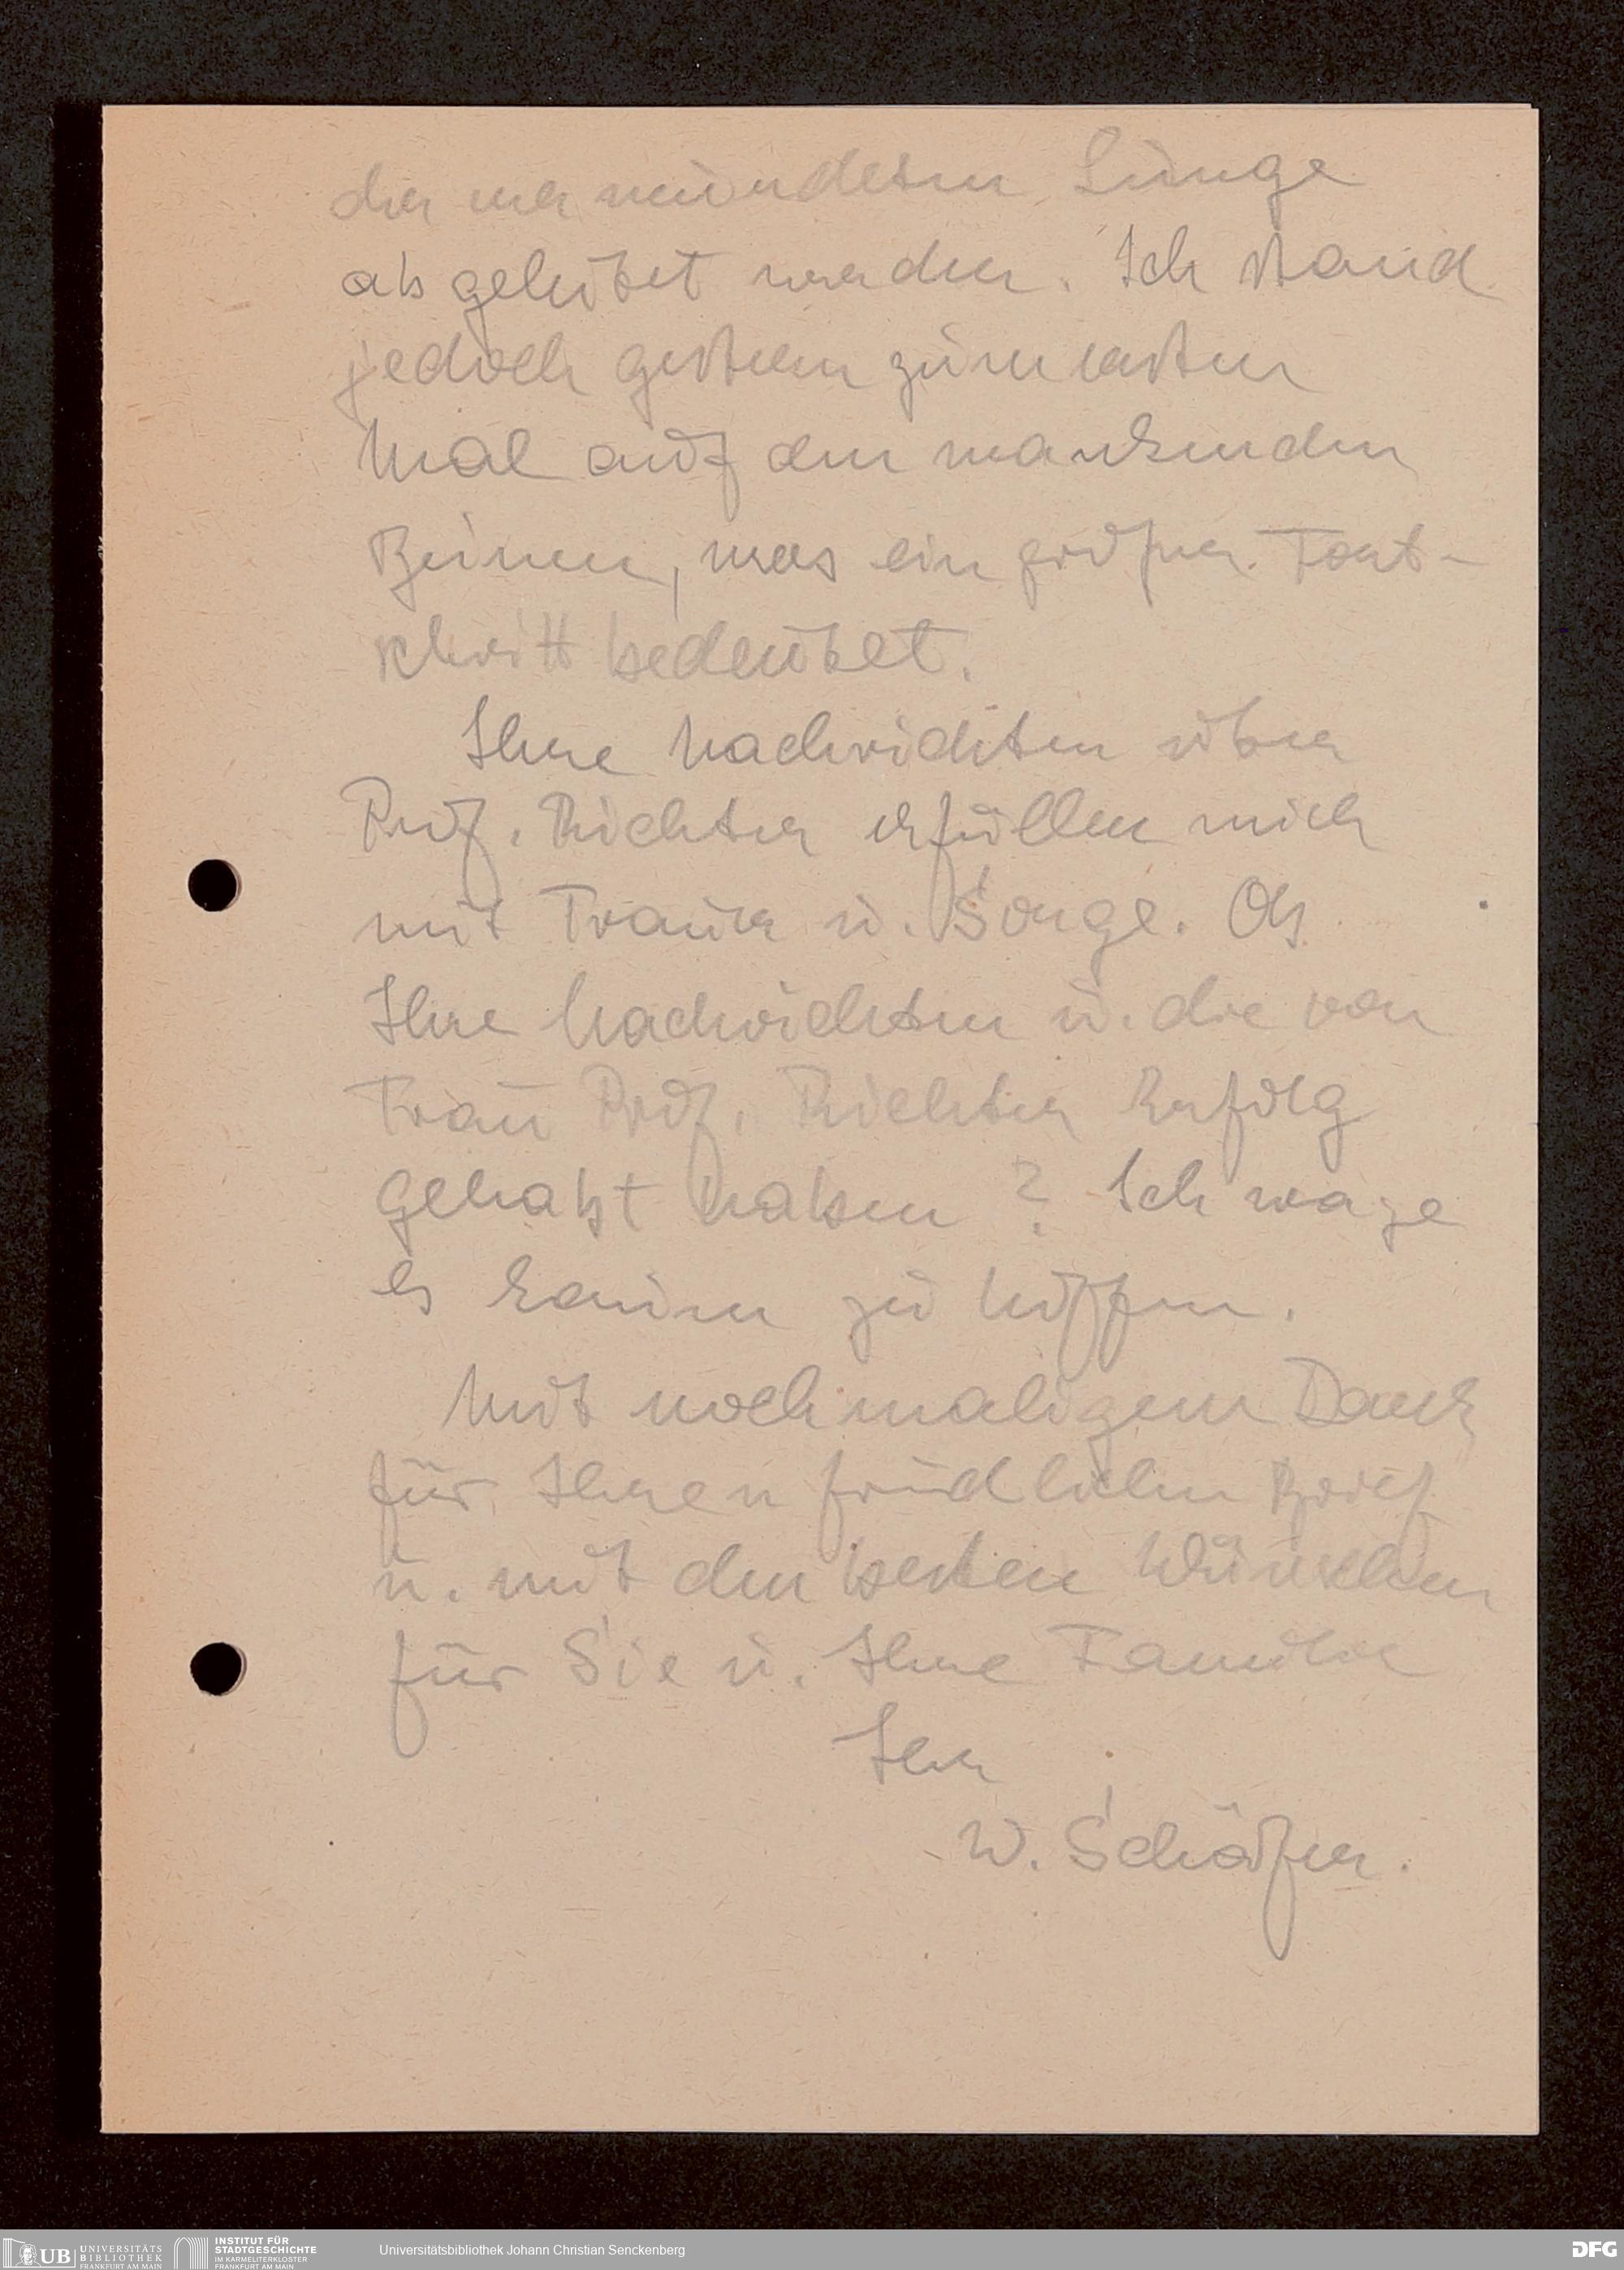 der verwundeten Lunge
abgeleitet werden. Ich stand
jedoch gestern zum ersten
Mal auf den wankenden
Beinen, was ein großer Fort-
schritt bedeutet.
Ihre Nachrichten über
Prof. Richter erfüllen mich
mit Trauer u. Sorge. Ob
Ihre Nachrichten u. die von
Frau Prof. Richter Erfolg
gehabt haben? Ich wage
es kaum zu hoffen.
Mit nochmaligem Dank
für Ihren Brief
u. mit den besten Wünschen
für Sie u. Ihre Familie
Ihr
W. Schäfer.
UB UNIVERSITÄTS
BIBLIOTHEK
FRANKFURT AM MAIN
INSTITUT FÜR
STADTGESCHICHTE
IM KARMELITERKLOSTER
FRANKFURT AM MAIN
Universitätsbibliothek Johann Christian Senckenberg
DFG